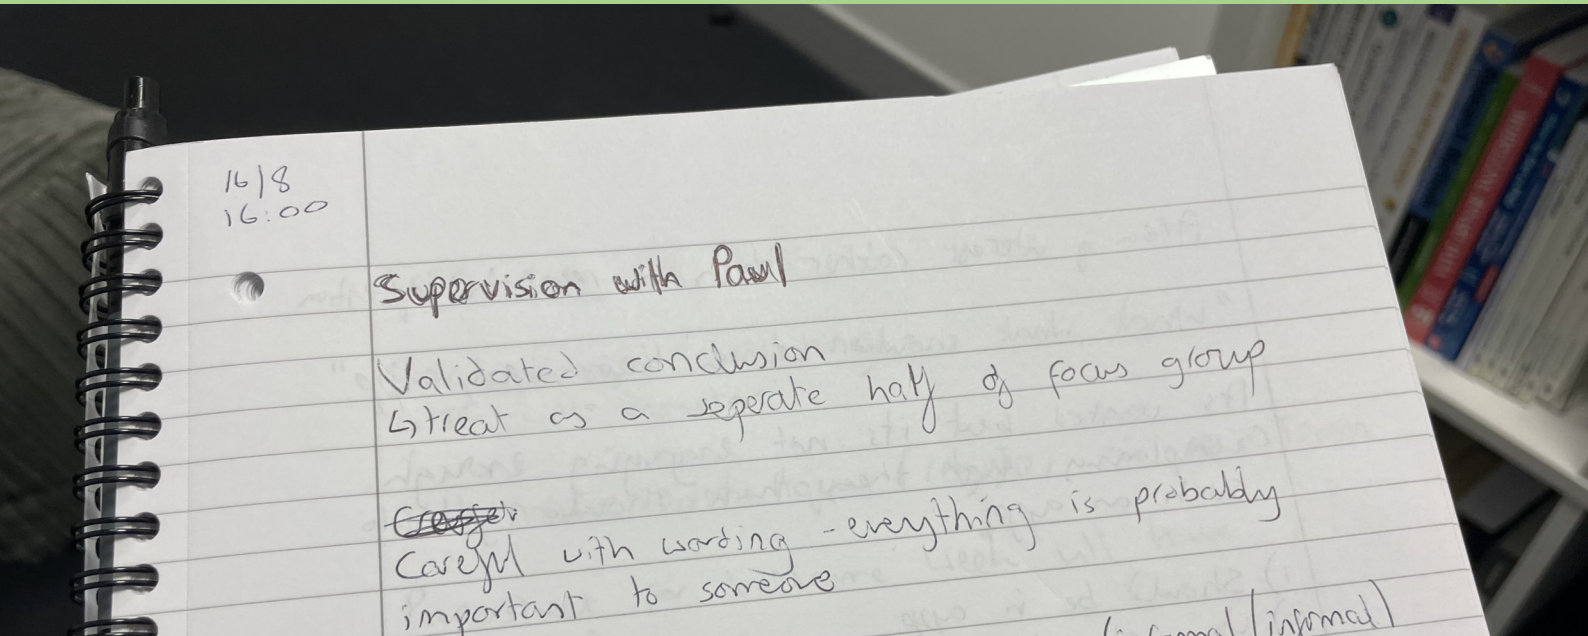 16/8
16:00
Supervision with Paul
Validated conclusion
↳ treat as a seperate half of focus group
Careful with wording - everything is probabldy
important to someone
/informal)